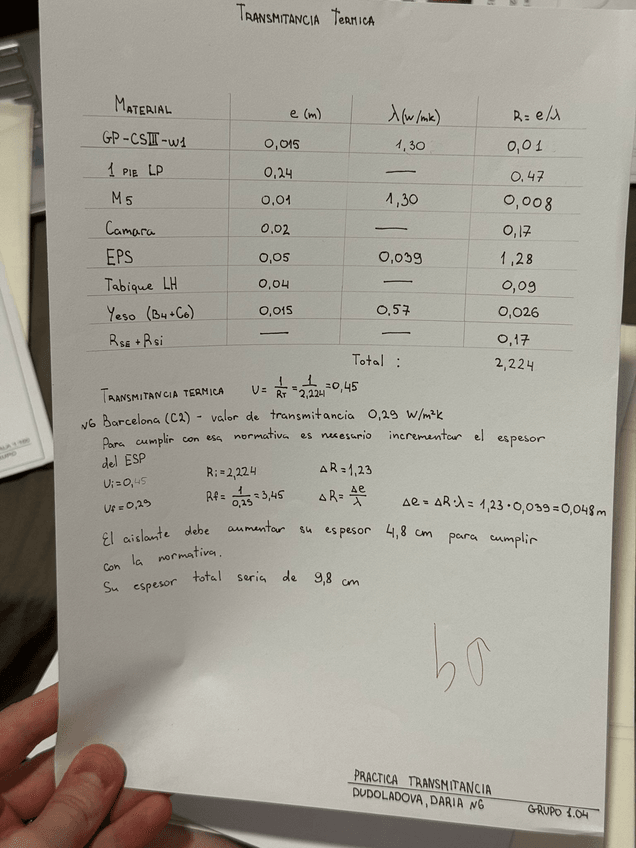 TRANSMITANCIA TERMICA
MATERIAL e (m) λ(w/mk) R= e/λ
GP-CSIII-W1 0,015 1,30 0,01
1 PIE LP 0,24 — 0,47
M5 0,01 1,30 0,008
Camara 0,02 — 0,17
EPS 0,05 0,039 1,28
Tabique LH 0,04 — 0,09
Yeso (B4+C6) 0,015 0,57 0,026
RSE + Rsi — — 0,17
Total : 2,224
TRANSMITANCIA TERMICA U= 1/RT = 1/2,224 =0,45
N6 Barcelona (C2) - valor de transmitancia 0,29 W/m²K
Para cumplir con esa normativa es necesario incrementar el espesor
del ESP
Ui=0,45 Ri=2,224 ΔR=1,23
Uf=0,29 Rf= 1/0,29 =3,45 ΔR= Δe/λ Δe = ΔR·λ = 1,23·0,039=0,048m
El aislante debe aumentar su espesor 4,8 cm para cumplir
con la normativa.
Su espesor total seria de 9,8 cm
PRACTICA TRANSMITANCIA
DUDOLADOVA, DARIA N6 GRUPO 1.04